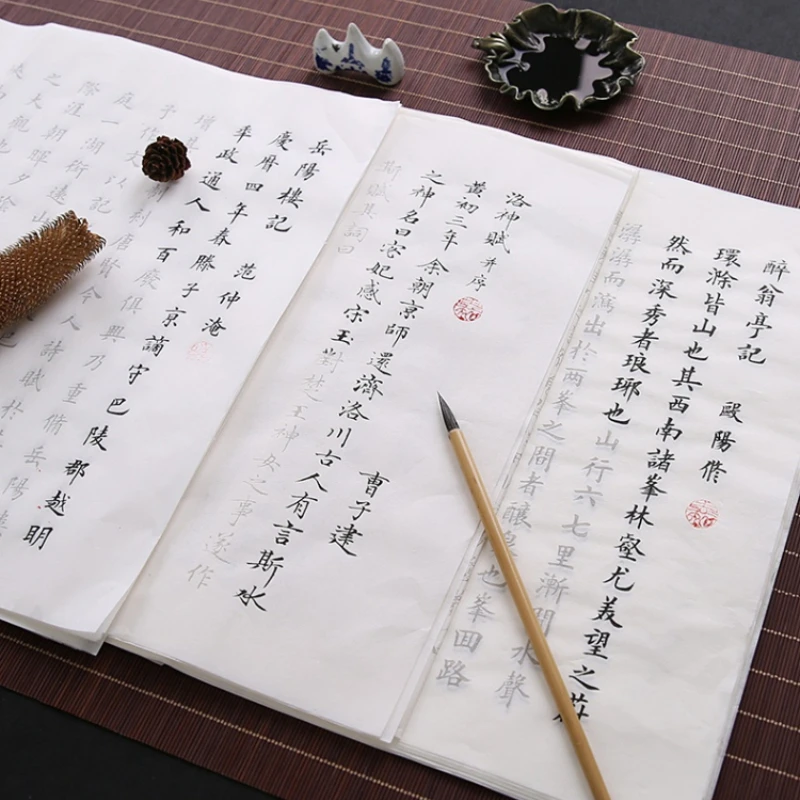 醉翁亭記 歐陽脩
環滁皆山也其西南諸峯林壑尤美望之蔚
然而深秀者琅琊也山行六七里漸聞水聲
潺潺而瀉出於两峯之間者釀泉也峯回路
洛神賦并序 曹子建
黄初三年余朝京師還濟洛川古人有言斯水
之神名曰宓妃感宋玉對楚王神女之事遂作
斯賦其詞曰
岳陽樓記 范仲淹
慶曆四年春滕子京謫守巴陵郡越明
年政通人和百廢俱興乃重脩岳陽樓
增 制刻唐賢今人詩賦於
予作文以記
庭一湖銜遠山
際涯朝暉夕陰
之大觀也